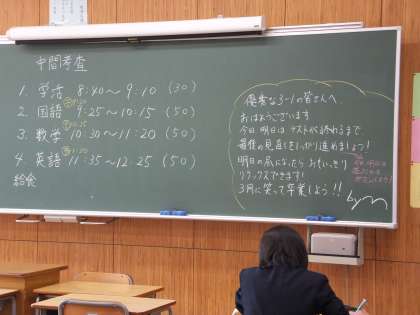 中間考査
1. 学活 8:40～9:10 (30)
2. 国語 9:25～10:15 (50)
3. 数学 10:30～11:20 (50)
4. 英語 11:35～12:25 (50)
給食
優秀な3-1の皆さんへ
おはようございます
今日、明日はテストが終わるまで、
最後の見直しをしっかり進めましょう！
明日の昼になったら おもいっきり
リラックスできます！
3月に笑って卒業しよう!!
by M